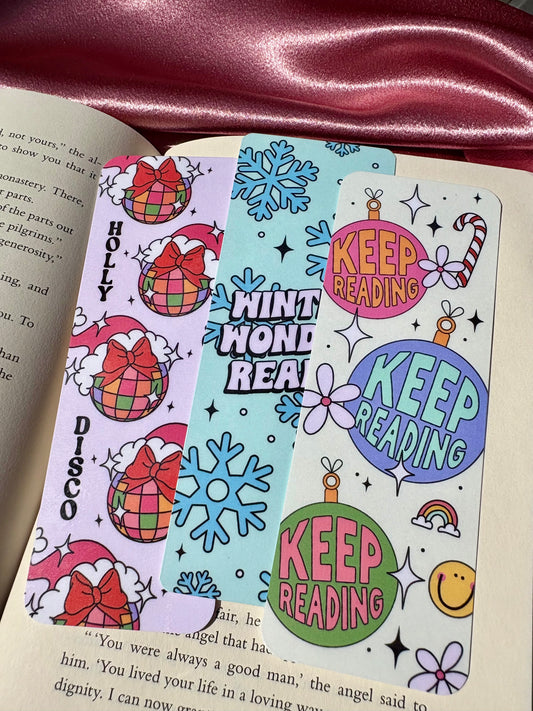 not yours,” the
to show you that it
monastery. There,
parts.
of the parts out
pilgrims.”
generosity.”
ing, and
ou. To
than
the
HOLLY
DISCO
WINT
WOND
REA
KEEP
READING
KEEP
READING
KEEP
READING
air, he
angel that ha
“‘You were always a good man,’ the angel said to
him. ‘You lived your life in a loving way
dignity. I can now gra